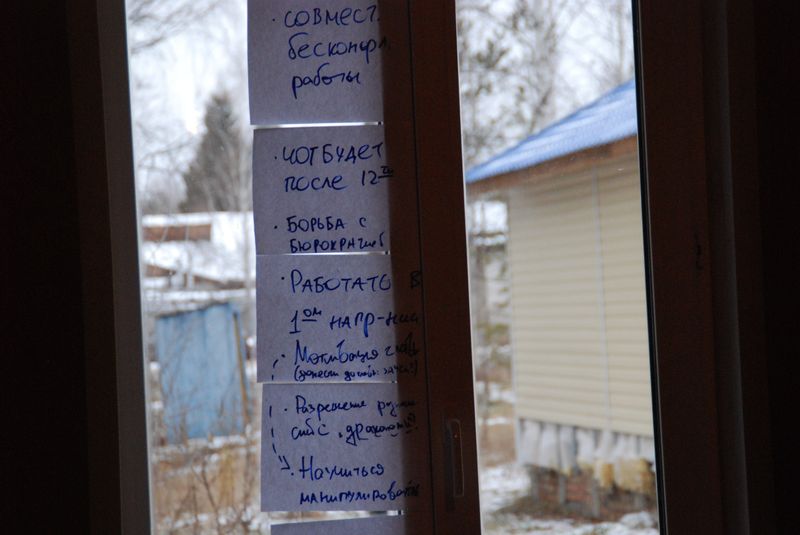 · СОВМЕСТ.
бесконфл.
работы
· ЧОТ БУДЕТ
ПОСЛЕ 12ти
· БОРЬБА С
БЮРОКРАТИЕЙ
· РАБОТАТЬ В
1ом НАПР-НИИ
· Мотивация
(донести до : зачем?)
· Разрешение
с
· Научиться
МАНИПУЛИРОВАТЬ